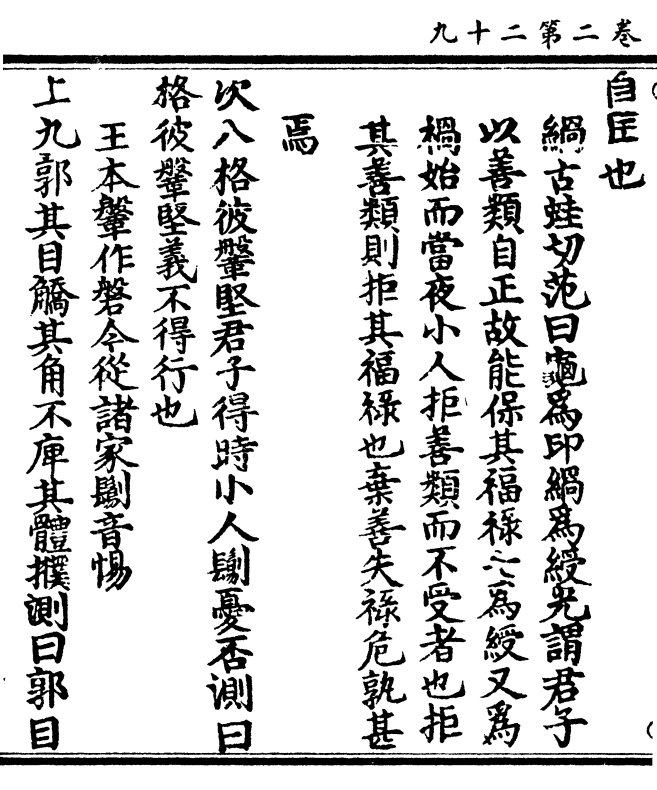 卷二第二十九
自匡也
緺古蛙切范曰龜為印緺為綬光謂君子
以善類自正故能保其福祿為綬又為
禍始而當夜小人拒善類而不受者也拒
其善類則拒其福祿也棄善失祿危孰甚
焉
次八格彼鞶堅君子得時小人鬄憂否測曰
格彼鞶堅義不得行也
王本鞶作磐今從諸家鬄音惕
上九郭其目䚩其角不庳其體撲測曰郭目